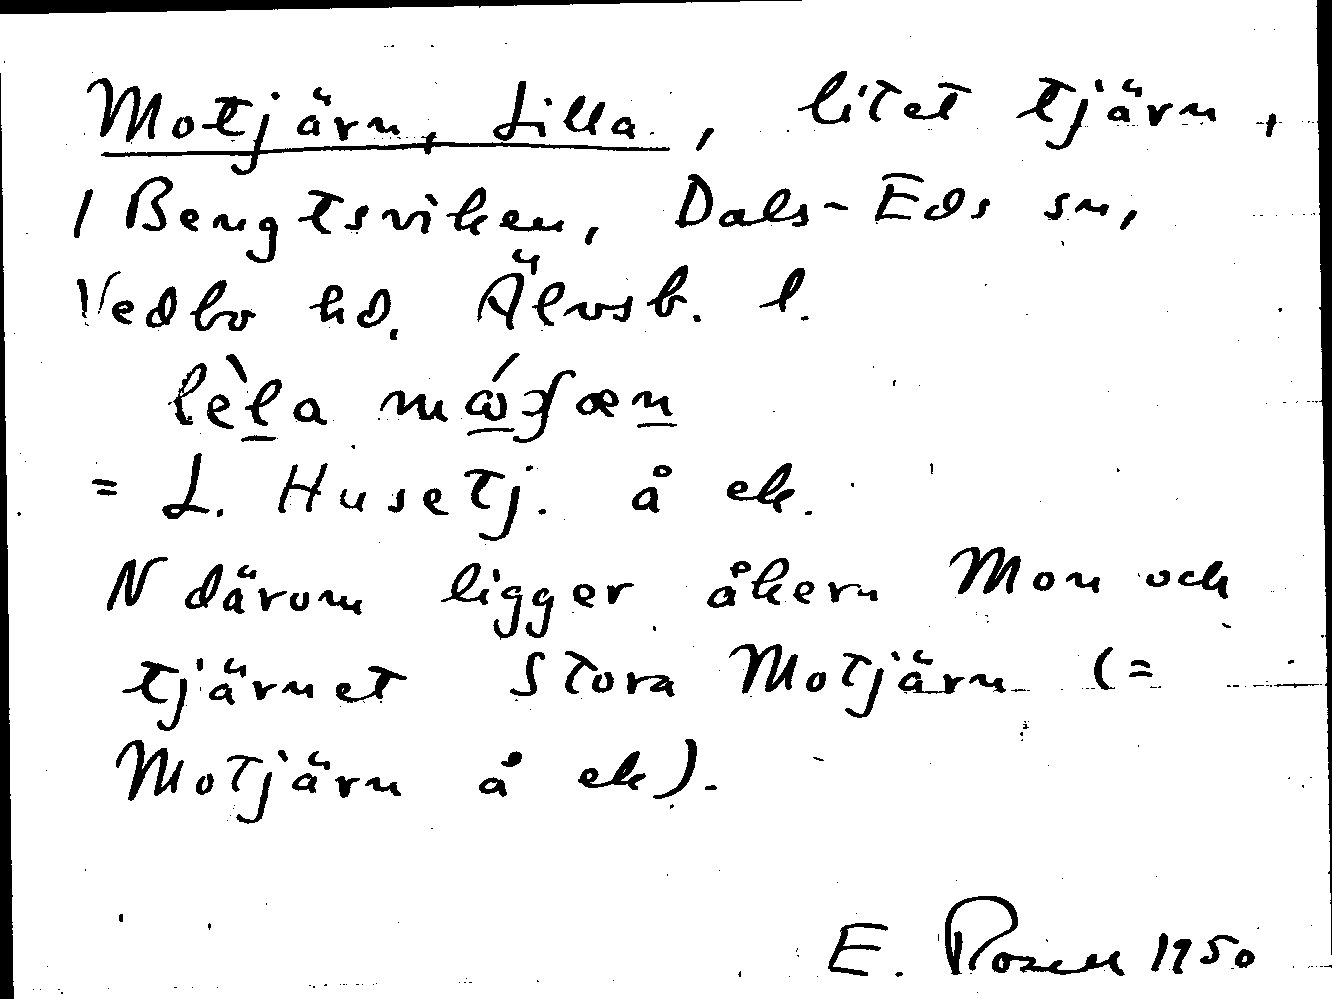 Motjärn, Lilla, litet tjärn,
1 Bengtsviken, Dals-Eds sn,
Vedbo hd. Älvsb. l.
lèla
= L. Husetj. å ek.
N därom ligger åkern Mon och
tjärnet Stora Motjärn (=
Motjärn å ek).
E. Rosell 1950